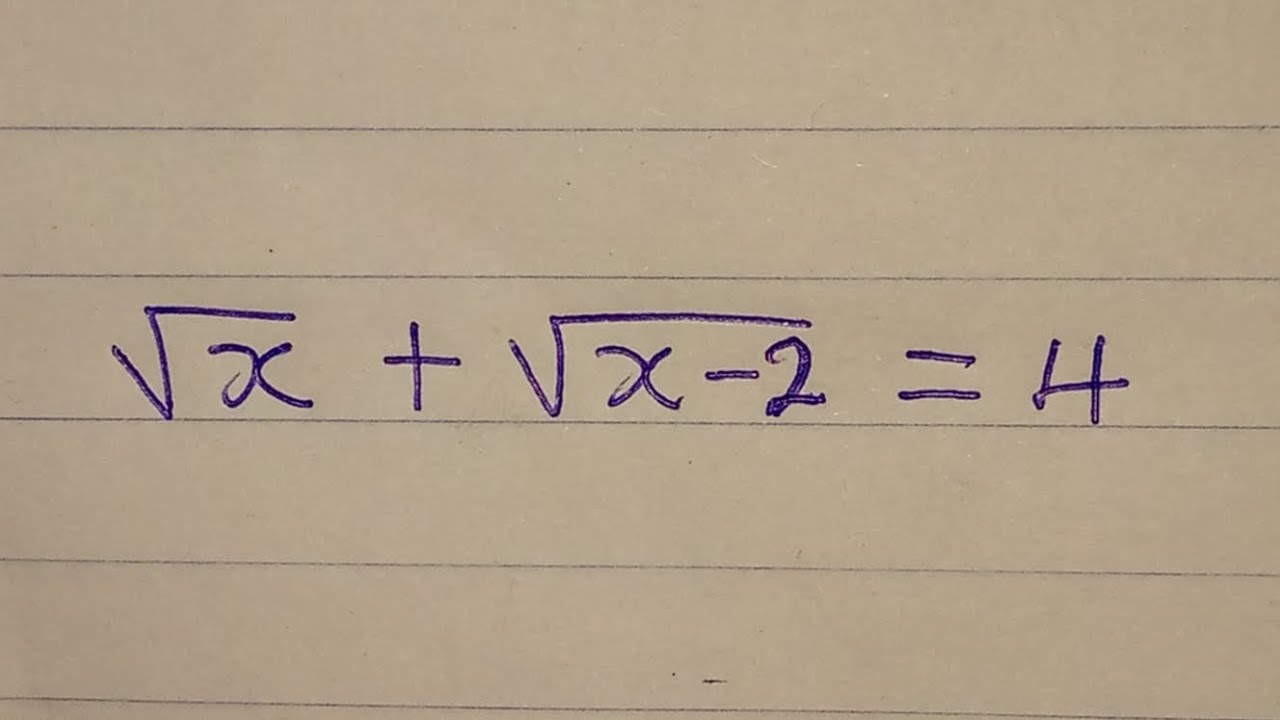 √x + √(x-2) = 4